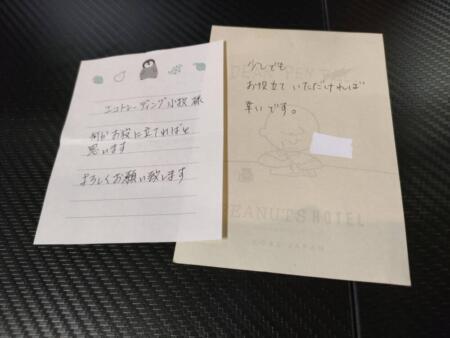 エコトレーディング小牧 様
何かお役に立てればと
思います
よろしくお願い致します
少しでも
お役立ていただければ
幸いです。
PEANUTS HOTEL
KOBE, JAPAN